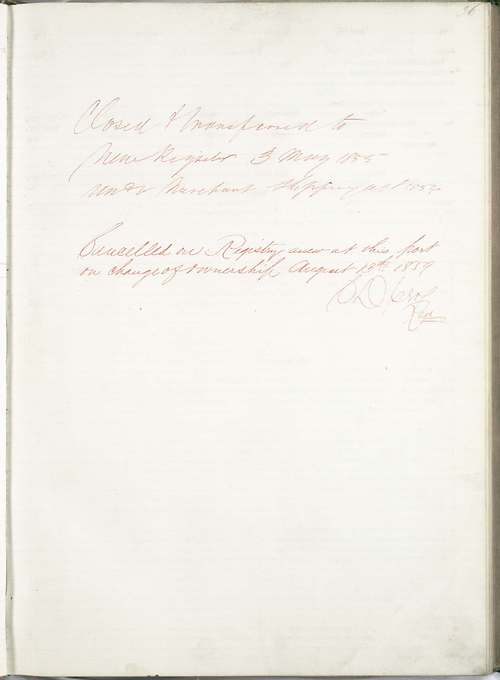 36
Closed & transferred to
New Register 3 May 1855
under Merchant Shipping act 1854
Cancelled on Registry anew at this port
on change of ownership August 13th 1859